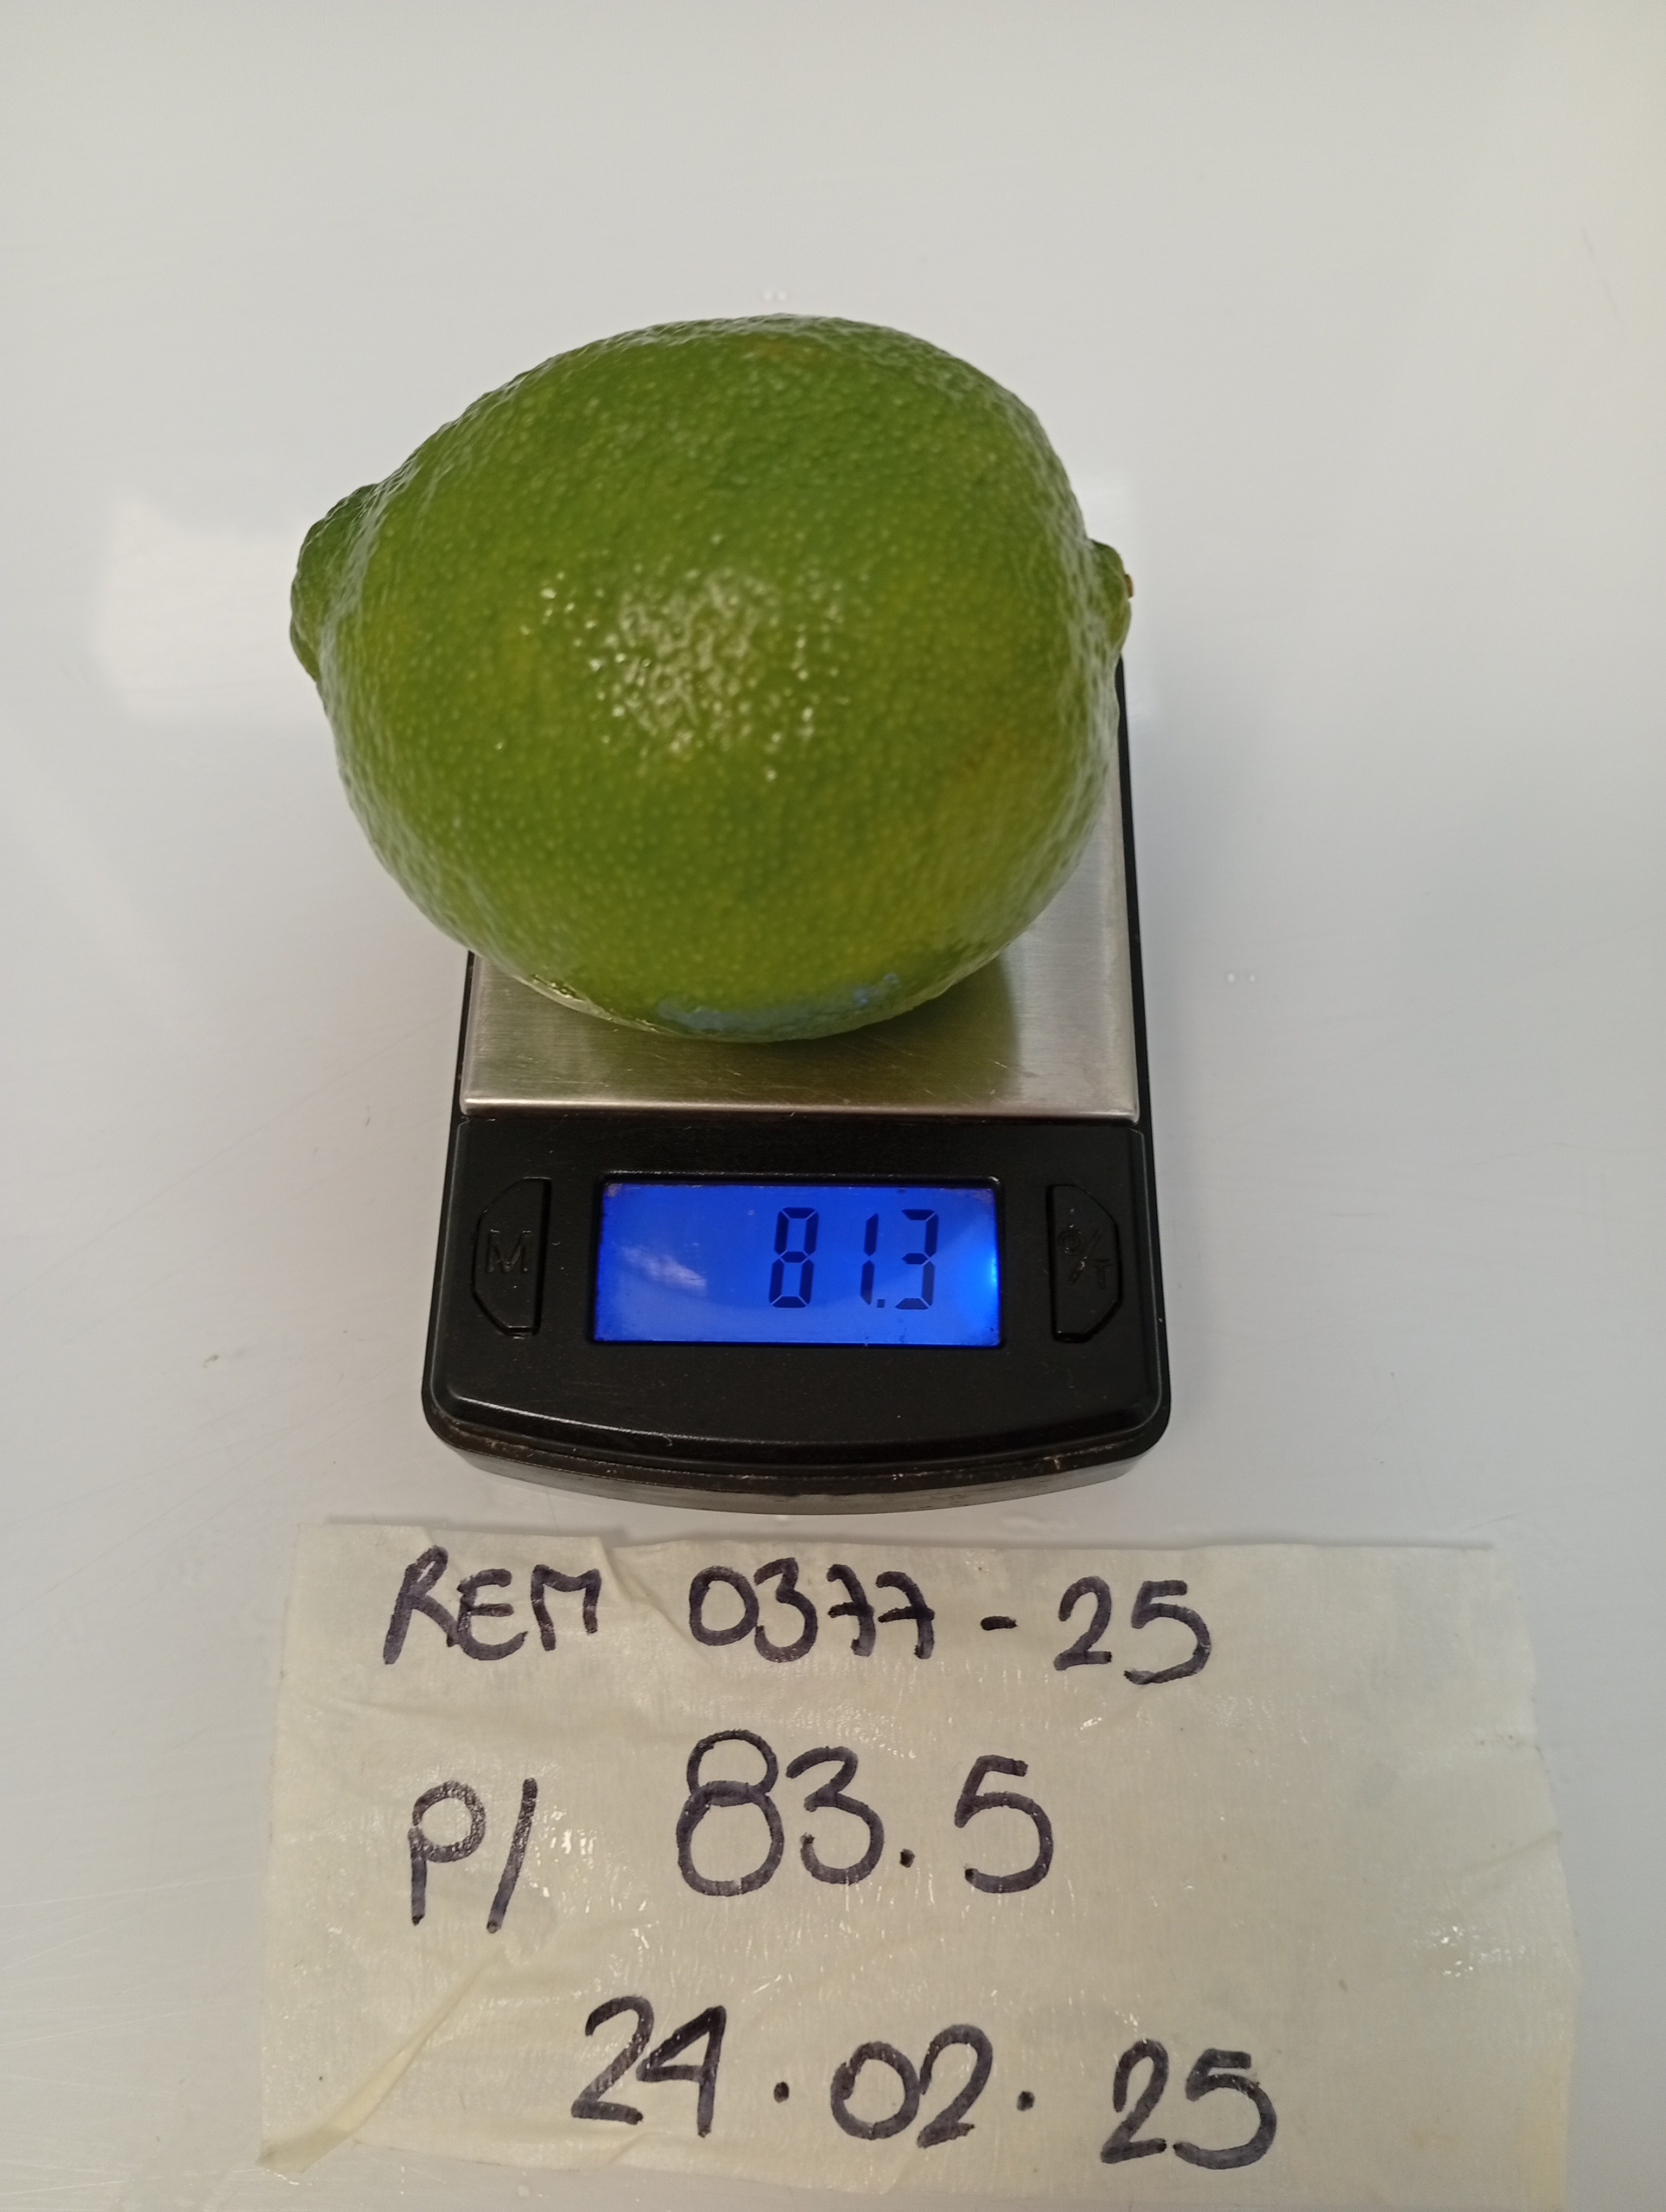 M
81.3
REM 0377-25
P/ 83.5
24.02.25